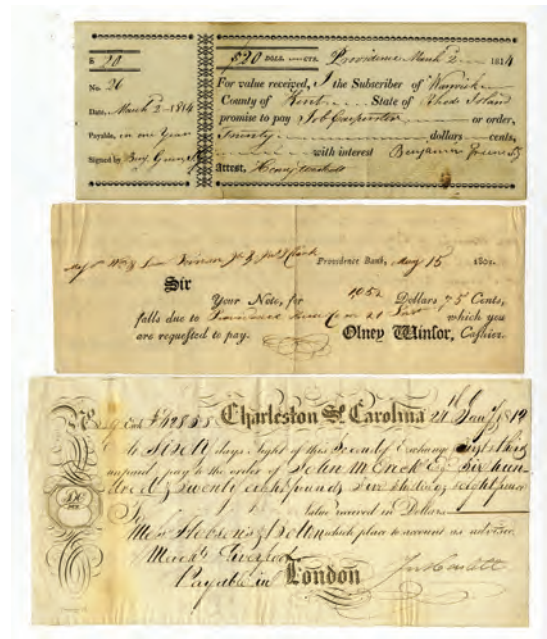 $ 20
No. 26
Date, March 2 - 1814
Payable, in one Year
Signed by Benj. Green
$20 DOLLS. CTS. Providence March 2 1814
For value received, I the Subscriber of Warwick
County of Kent State of Rhode Island
promise to pay Job Carpenter or order,
Twenty dollars cents,
with interest Benjamin Greene
Attest, Henry
Providence Bank, May 15 1801.
Sir
Your Note, for 1,052 Dollars 75 Cents,
falls due to which you
are requested to pay. Olney Winsor, Cashier.
Charleston So Carolina 24 1819
At Sixty days Sight of this Second of Exchange first & third
unpaid, pay to the order of John M Six hun
dred & twenty eight pounds shillings eight pence
To Value received in Dollars
Mess which place to account as advised
Merch Liverpool
Payable in London